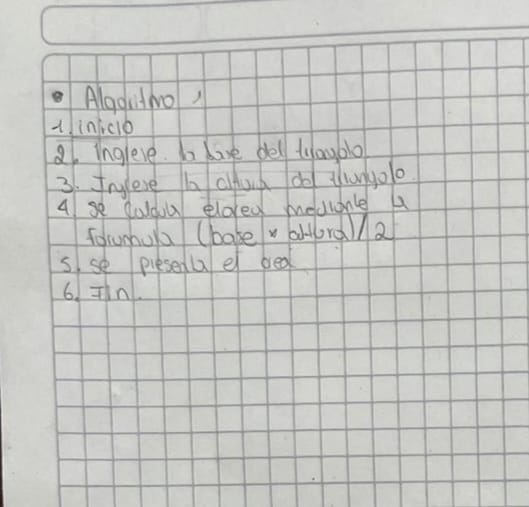 • Algoritmo,
1. inicio
2. Ingrese la base del triangolo
3. Ingrese la altura del triangolo.
4. se calcula elarea mediante la
formula (base x altura) / 2
5. se presenta el area
6. Fin.